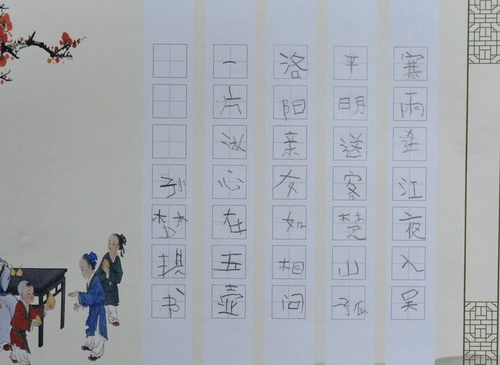 寒雨连江夜入吴
平明送客楚山孤
洛阳亲友如相问
一片冰心在五壶
孙梦书